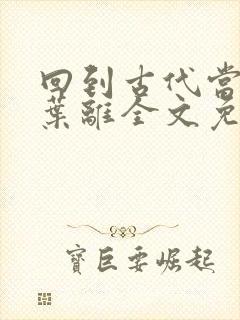 回到古代当
葉離全文免
寶巨要崛起